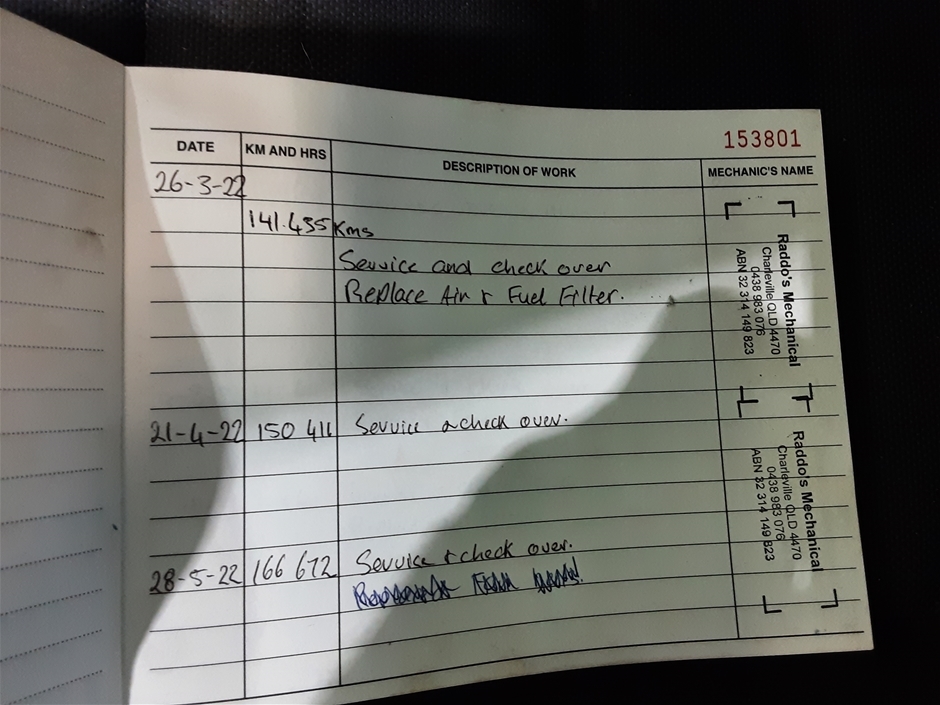 153801
DATE KM AND HRS DESCRIPTION OF WORK MECHANIC'S NAME
26-3-22
141.435 Kms
Service and check over
Replace Air & Fuel Filter.
Raddo's Mechanical
Charleville QLD 4470
0438 983 076
ABN 32 314 149 823
21-4-22 150 411 Service & check over.
Raddo's Mechanical
Charleville QLD 4470
0438 983 076
ABN 32 314 149 823
28-5-22 166 672 Service & check over.